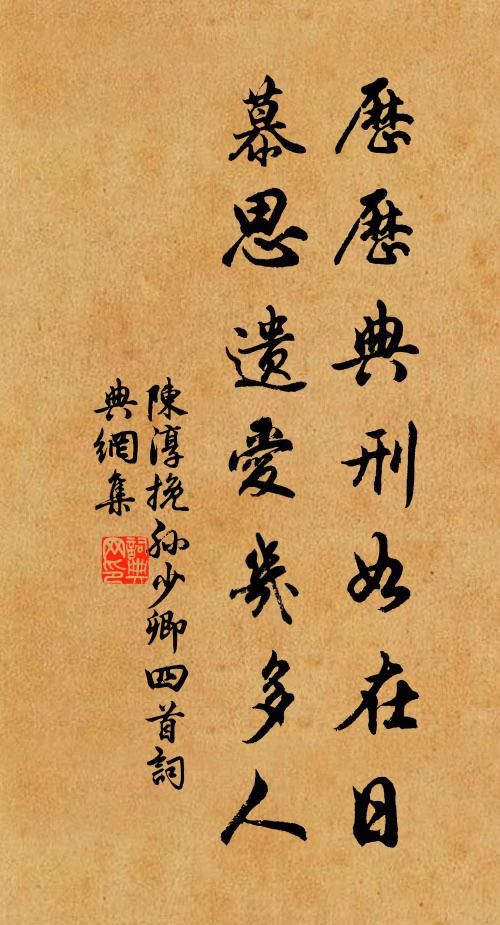 歷歷典刑如在日
慕思遺愛幾多人
陳淳挽孙少卿四首詞
典網集
詞典
网印